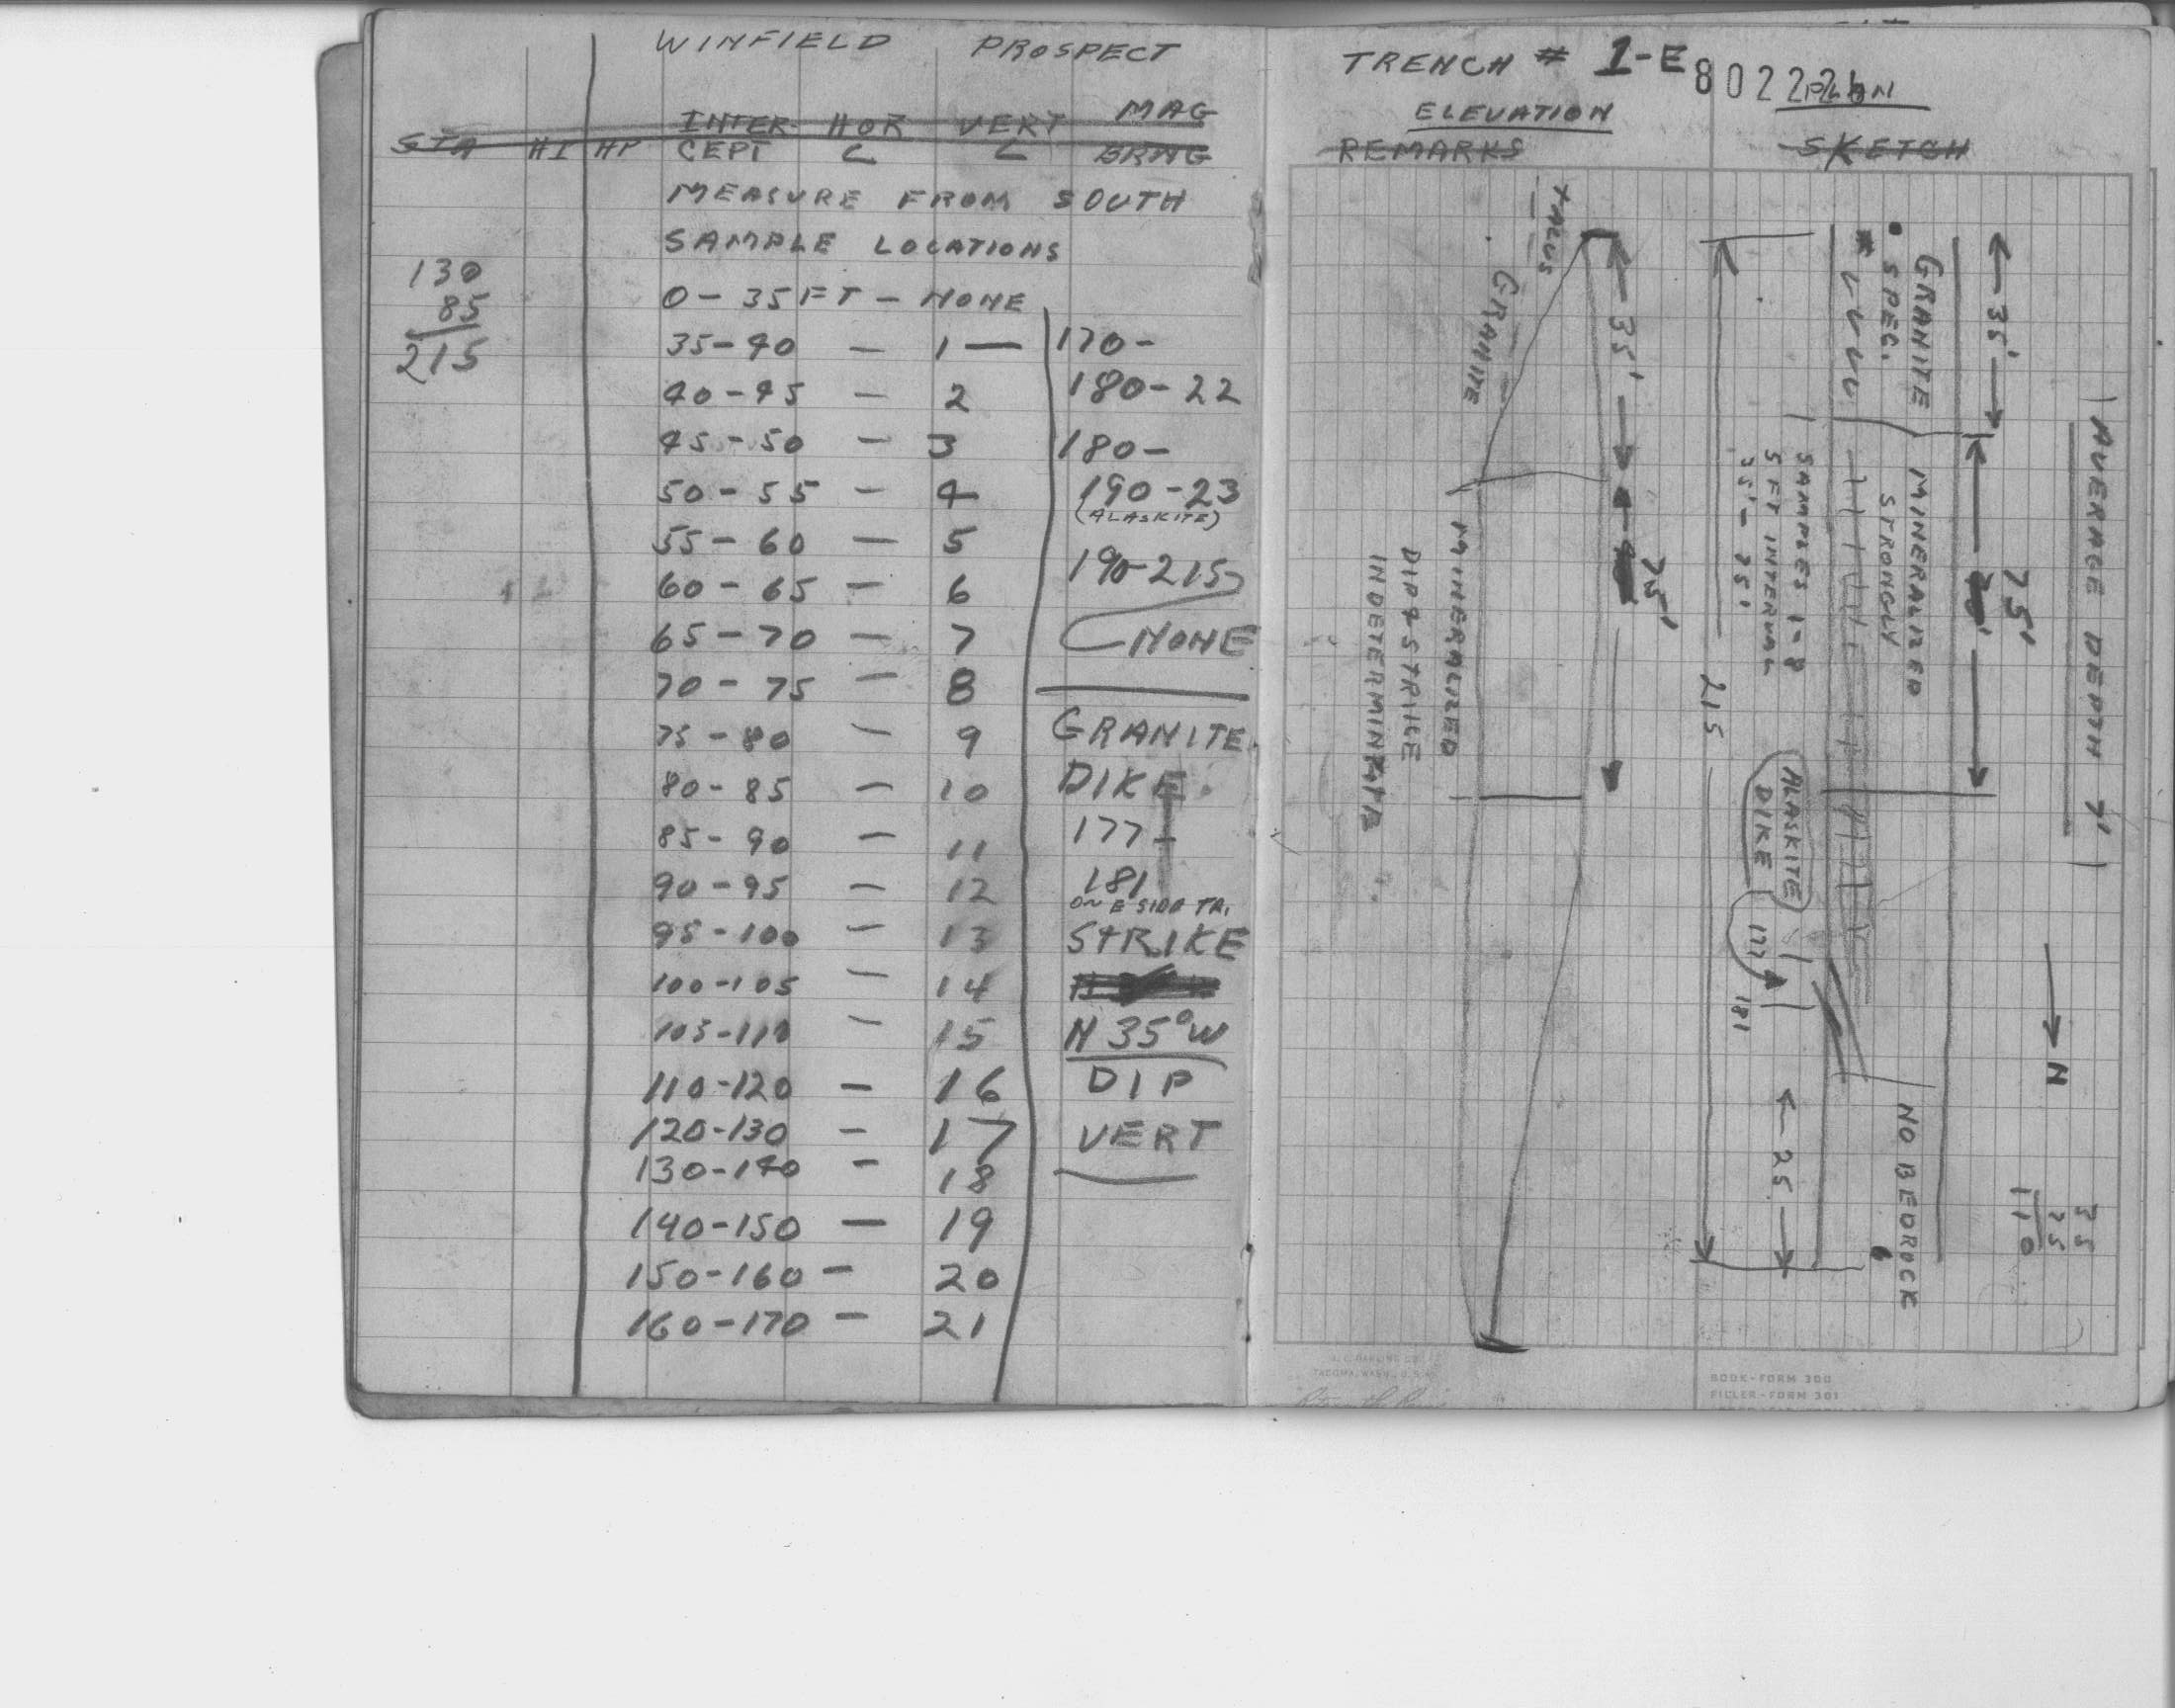 WINFIELD PROSPECT
STA HI HP INTER-CEPT HOR L VERT L MAG BRNG
MEASURE FROM SOUTH
SAMPLE LOCATIONS
130
85
215
0-35FT - NONE
35-40 - 1 -
40-45 - 2
45-50 - 3
50-55 - 4
55-60 - 5
60-65 - 6
65-70 - 7
70-75 - 8
75-80 - 9
80-85 - 10
85-90 - 11
90-95 - 12
95-100 - 13
100-105 - 14
105-110 - 15
110-120 - 16
120-130 - 17
130-140 - 18
140-150 - 19
150-160 - 20
160-170 - 21
170-
180-22
180-
190-23
(ALASKITE)
190-215
NONE
GRANITE
DIKE
177-
181
ON E SIDE TR.
STRIKE
N 35° W
DIP
VERT
TRENCH # 1-E
802226
ELEVATION
PLAN
REMARKS
SKETCH
TALUS
GRANITE
35'
75'
MINERALIZED
DIP & STRIKE
INDETERMINATE
215
35'
75'
GRANITE
SPEC.
MINERALIZED
STRONGLY
SAMPLES 1-8
5 FT INTERVAL
35'-75'
ALASKITE
DIKE
177
181
25
NO BEDROCK
AVERAGE DEPTH 7'
N
35
75
110
TACOMA, WASH., U.S.A.
BOOK-FORM 300
FILLER-FORM 301